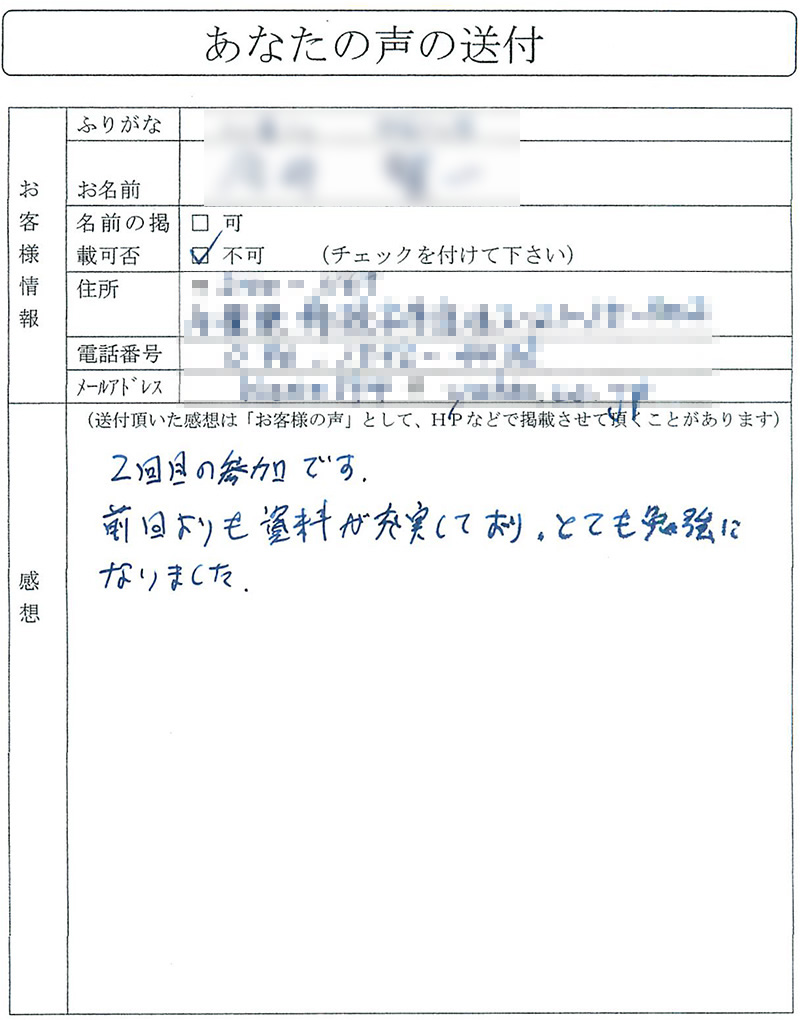 あなたの声の送付
お客様情報
ふりがな
お名前
名前の掲載可否
□ 可
☑ 不可 （チェックを付けて下さい）
住所
電話番号
メールアドレス
感想
（送付頂いた感想は「お客様の声」として、HPなどで掲載させて頂くことがあります）
2回目の参加です.
前回よりも資料が充実しており。とても勉強に
なりました.